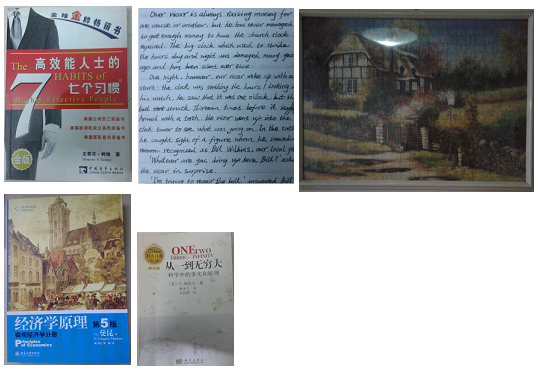 全球金牌畅销书
The 高效能人士的
7 HABITS of
七个习惯
Highly Effective People
金版
史蒂芬·柯维 著
中国青年出版社
Our vicar is always raising money for
one cause or another, but he has never managed
to get enough money to have the church clock
repaired. The big clock which used to strike
the hours day and night was damaged many years
ago and has been silent ever since.
One night, however, our vicar woke up with a
start: the clock was striking the hours! Looking at
his watch, he saw that it was one o'clock, but the
bell struck thirteen times before it stopped.
Armed with a torch, the vicar went up into the
clock tower to see what was going on. In the torch
he caught sight of a figure whom he immediately
recognized as Bill Wilkins, our local
'Whatever are you doing up here Bill?' asked
the vicar in surprise.
'I'm trying to repair the bell,' answered Bill
经济学原理 第5版
微观经济学分册
曼昆
Principles of
Economics
北京大学出版社
ONE TWO
THREE... INFINITY
从一到无穷大
科学中的事实和臆测
科学出版社